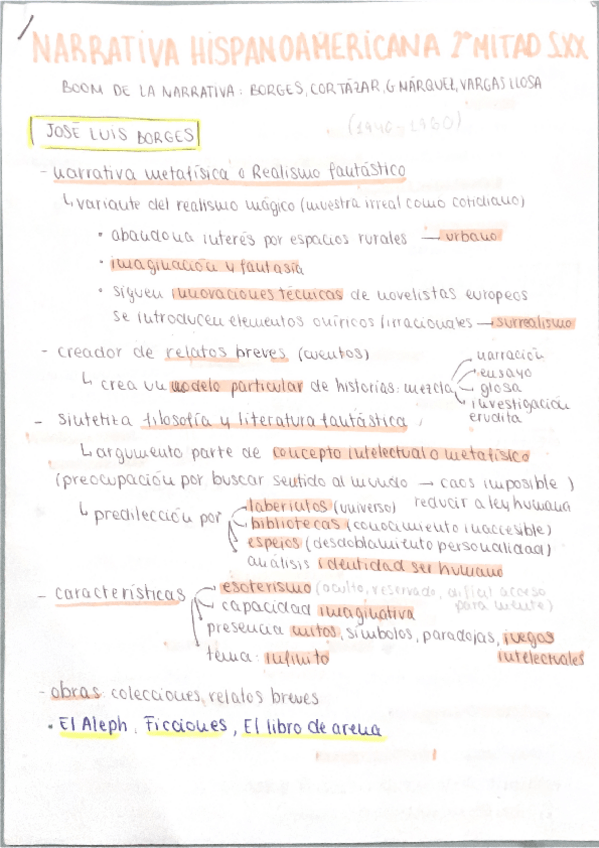 NARRATIVA HISPANOAMERICANA 2ª MITAD S.XX
BOOM DE LA NARRATIVA: BORGES, CORTÁZAR, G MÁRQUEL, VARGAS LLOSA
JOSÉ LUIS BORGES
(1940-1980)
- narrativa metafísica o Realismo fantástico
↳ variante del realismo mágico (muestra irreal como cotidiano)
• abandona interés por espacios rurales → urbano
• imaginación y fantasía
• siguen innovaciones técnicas de novelistas europeos
se introducen elementos oníricos/irracionales → surrealismo
- creador de relatos breves (cuentos)
↳ crea un modelo particular de historias: mezcla
narración
ensayo
glosa
investigación
erudita
- sintetiza filosofía y literatura fantástica
↳ argumento parte de concepto intelectual o metafísico
(preocupación por buscar sentido al mundo → caos imposible )
reducir a ley humana
↳ predilección por
laberintos (universo)
bibliotecas (conocimiento inaccesible)
espejos (desdoblamiento personalidad)
análisis identidad ser humano
- características
esoterismo (oculto, reservado, difícil acceso
para mente)
capacidad imaginativa
presencia mitos, símbolos, paradojas, juegos
intelectuales
tema: infinito
- obras: colecciones, relatos breves
• El Aleph, Ficciones, El libro de arena